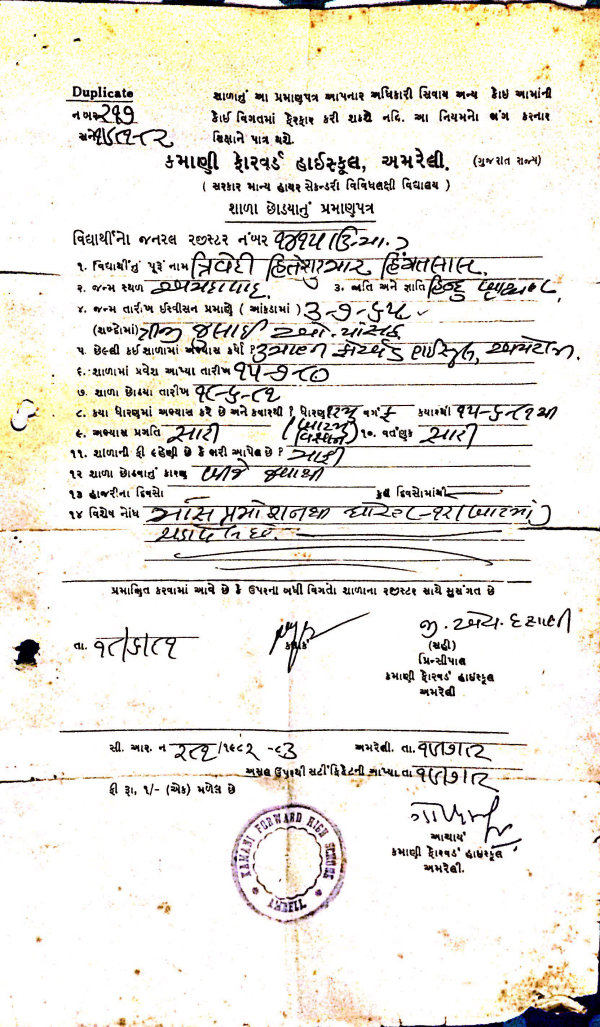 Duplicate
નંબર ૨૧૭
શાળાનું આ પ્રમાણપત્ર આપનાર અધિકારી સિવાય અન્ય કોઇ આમાંની
કોઈ વિગતમાં ફેરફાર કરી શકશે નહિ. આ નિયમનો ભંગ કરનાર
શિક્ષાને પાત્ર થશે.
કમાણી ફોરવર્ડ હાઈસ્કૂલ, અમરેલી. (ગુજરાત રાજ્ય)
( સરકાર માન્ય હાયર સેકન્ડરી વિવિધલક્ષી વિદ્યાલય )
શાળા છોડયાનું પ્રમાણપત્ર
વિદ્યાર્થીનો જનરલ રજીસ્ટર નંબર ૧૪૧૫ (ઉ.મા.)
૧. વિદ્યાર્થીનું પૂરૂં નામ ત્રિવેદી હિતેશકુમાર હિંમતલાલ.
૨. જન્મ સ્થળ અમદાવાદ. ૩. જાતિ અને જ્ઞાતિ હિન્દુ બ્રાહ્મણ
૪. જન્મ તારીખ ઈસ્વીસન પ્રમાણે ( આંકડામાં ) ૩-૭-૬૫
(શબ્દોમાં) ત્રીજી જુલાઈ પાંસઠ
૫. છેલ્લી કઈ શાળામાં અભ્યાસ કર્યો ? કમાણી ફોરવર્ડ હાઈસ્કૂલ, અમરેલી.
૬. શાળામાં પ્રવેશ આપ્યા તારીખ ૧૫-૭-૮૦
૭. શાળા છોડયા તારીખ
૮. કયા ધોરણમાં અભ્યાસ કરે છે અને કયારથી ? ધોરણ ૧૨મું વર્ગ ક કયારથી ૧૫-૬-૮૧થી
૯. અભ્યાસ પ્રગતિ સારી (બારમું વિજ્ઞાન) ૧૦. વર્તણુક સારી
૧૧. શાળાની ફી લ્હેણી છે કે ભરી આપેલ છે ? માફી
૧૨ શાળા છોડવાનું કારણ બીજે જવાથી
૧૩ હાજરીના દિવસો કુલ દિવસોમાંથી
૧૪ વિશેષ નોંધ માસ પ્રમોશનથી ધોરણ-૧૨ (બારમાં)
ચડાવેલ છે.
પ્રમાણિત કરવામાં આવે છે કે ઉપરના બધી વિગતો શાળાના રજીસ્ટર સાથે સુસંગત છે
તા. ૧૮/૬/૮૧
કલાર્ક
જી. એચ. દસાણી
(સહી)
પ્રિન્સીપાલ
કમાણી ફોરવર્ડ હાઇસ્કૂલ
અમરેલી
સી. આર. નં ૨૮૧/૧૯૮૨ -૬૩ અમરેલી. તા. ૧૫/૭/૮૨
અસલ ઉપરથી સર્ટીફિકેટની આપ્યા તા ૧૫/૭/૮૨
ફી રૂા. ૧/- (એક) મળેલ છે
આચાર્ય
કમાણી ફોરવર્ડ હાઇસ્કૂલ
અમરેલી.
KAMANI FORWARD HIGH SCHOOL
AMRELI